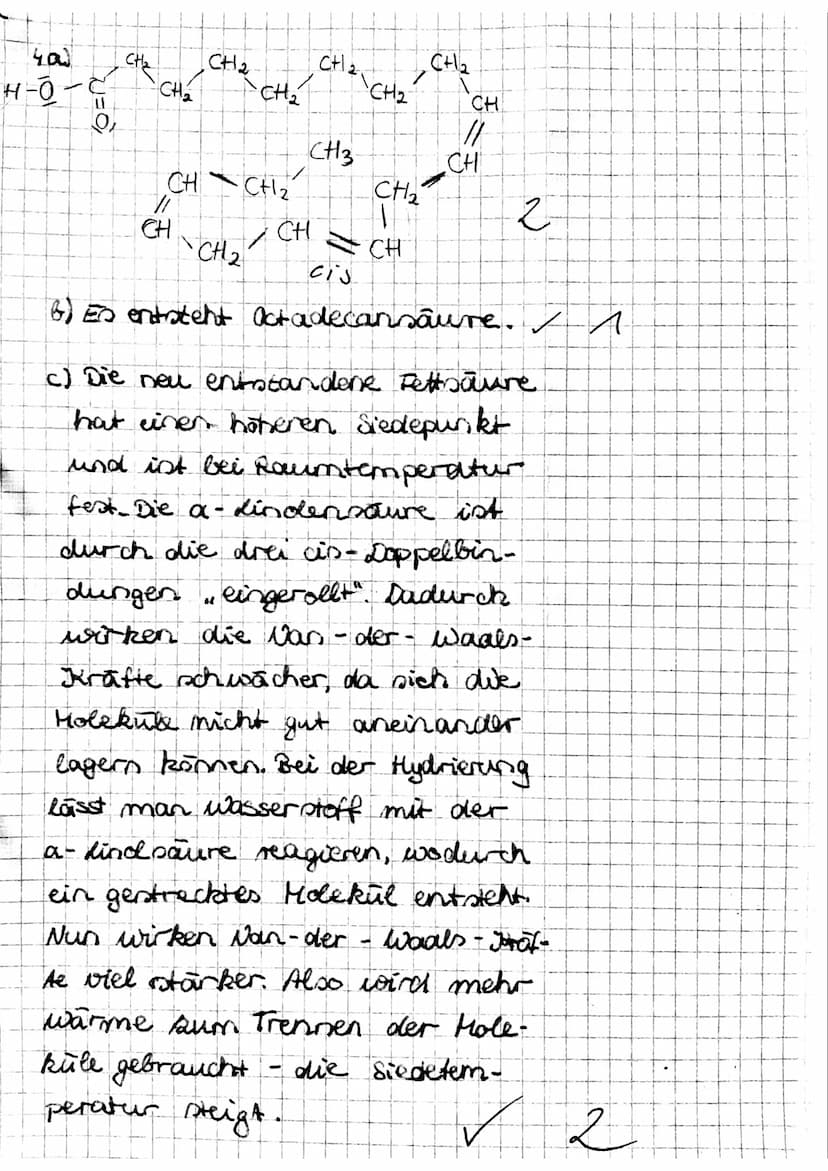 4a) CH₂ CH₂ CH₂ CH₂
H-O-C CH₂ CH₂ CH₂ CH
O
CH₃ CH
CH CH₂ CH₂
CH CH₂ CH CH 2
cis
b) Es entsteht Octadecansäure. ✓ 1
c) Die neu entstandene Fettsäure
hat einen höheren Siedepunkt
und ist bei Raumtemperatur
fest. Die α-Linolensäure ist
durch die drei cis-Doppelbin-
dungen „eingerollt“. Dadurch
wirken die Van-der-Waals-
Kräfte schwächer, da sich die
Moleküle nicht gut aneinander
lagern können. Bei der Hydrierung
lässt man Wasserstoff mit der
α-Linolsäure reagieren, wodurch
ein gestrecktes Molekül entsteht.
Nun wirken Van-der-Waals-Kräf-
te viel stärker. Also wird mehr
Wärme zum Trennen der Mole-
küle gebraucht - die Siedetem-
peratur steigt.
✓ 2